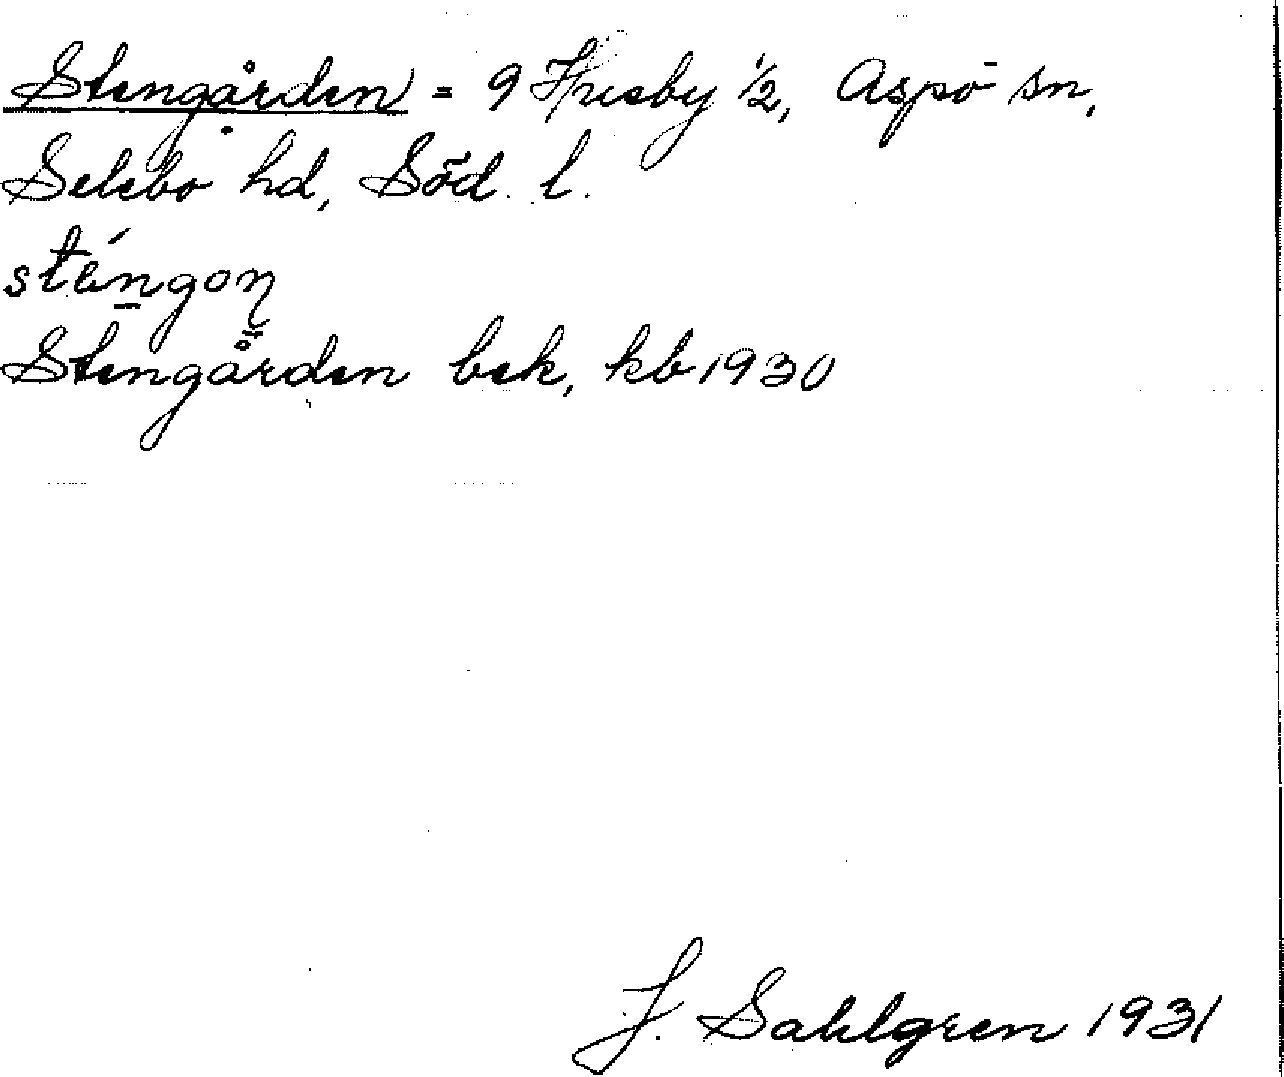 Stengården = 9 Husby ½, Aspö sn,
Selebo hd, Söd. l.
sténgoṇ
Stengården bek, kb 1930
J. Sahlgren 1931